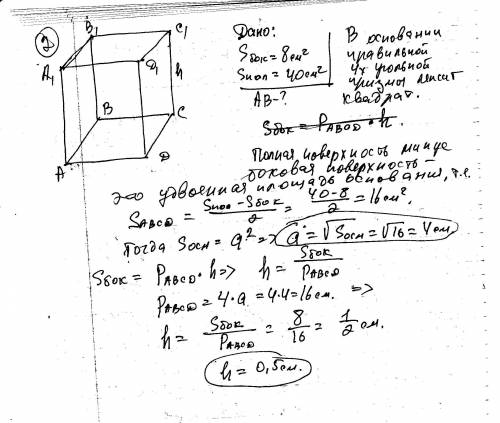 2
B₁
C₁
A₁
D₁
h
B
C
A
D
Дано:
Sбок = 8см²
Sпол = 40см²
AB-?
В основании
правильной
4х угольной
призмы лежит
квадрат.
Sбок = PABCD · h.
Полная поверхность минус
боковая поверхность –
это удвоенная площадь основания, т.е.
SABCD = Sпол - Sбок / 2 = 40-8 / 2 = 16 см².
Тогда Sосн = a² => a = √Sосн = √16 = 4 см
Sбок = PABCD · h => h = Sбок / PABCD
PABCD = 4·a = 4·4 = 16 см. =>
h = Sбок / PABCD = 8 / 16 = 1 / 2 см.
h = 0,5см.